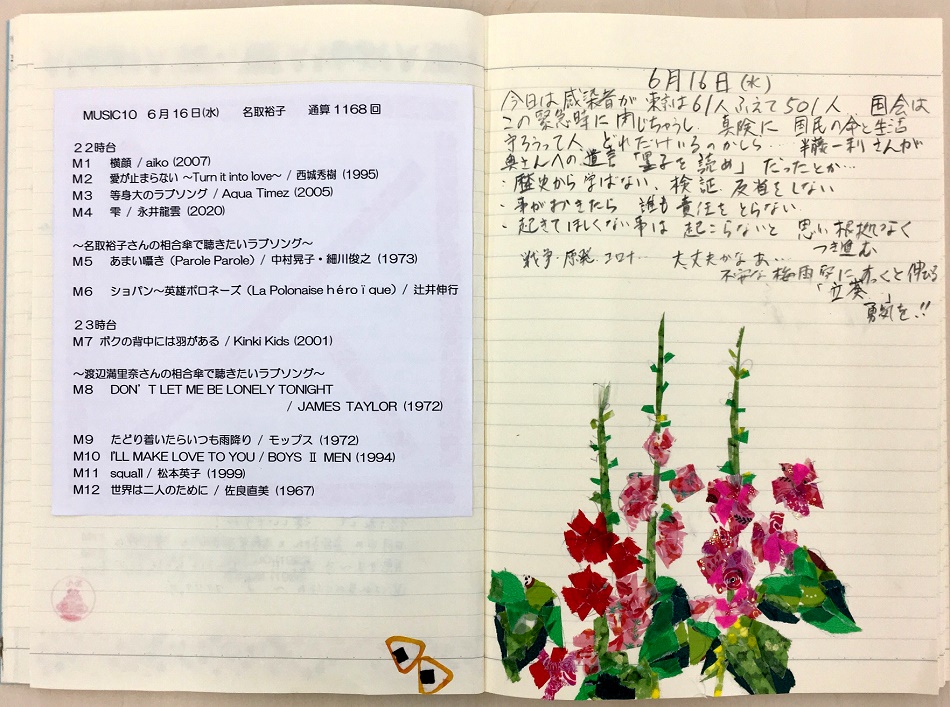 MUSIC10 6月16日(水) 名取裕子 通算1168回
22時台
M1 横顔 / aiko (2007)
M2 愛が止まらない ～Turn it into love～ / 西城秀樹 (1995)
M3 等身大のラブソング / Aqua Timez (2005)
M4 雫 / 永井龍雲 (2020)
～名取裕子さんの相合傘で聴きたいラブソング～
M5 あまい囁き (Parole Parole) / 中村晃子・細川俊之 (1973)
M6 ショパン～英雄ポロネーズ (La Polonaise héroïque) / 辻井伸行
23時台
M7 ボクの背中には羽がある / Kinki Kids (2001)
～渡辺満里奈さんの相合傘で聴きたいラブソング～
M8 DON'T LET ME BE LONELY TONIGHT
/ JAMES TAYLOR (1972)
M9 たどり着いたらいつも雨降り / モップス (1972)
M10 I'LL MAKE LOVE TO YOU / BOYS Ⅱ MEN (1994)
M11 squall / 松本英子 (1999)
M12 世界は二人のために / 佐良直美 (1967)
6月16日(水)
今日は感染者が 東京は61人ふえて501人. 国会は
この緊急時に閉じちゃうし. 真険に 国民の命と生活
守ろうって人 どれだけいるのかしら... 半藤一利さんが
奥さんへの遺言「墨子を読め」だったとか...
・歴史から学ばない、検証 反省をしない
・事がおきたら 誰も責任をとらない.
・起きてほしくない事は 起こらないと 思い根拠なく
つき進む
戦争・原発・コロナ... 大丈夫かなあ...
不安な梅雨空に すっくと伸びる
「立葵」
勇気を.!!